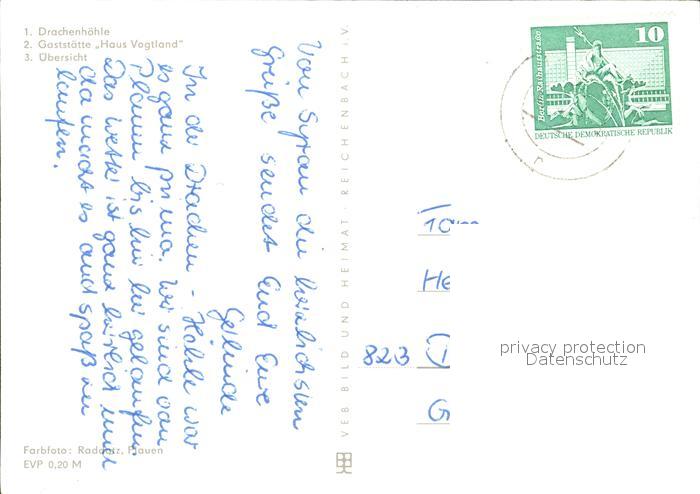 1. Drachenhöhle
2. Gaststätte „Haus Vogtland"
3. Übersicht
Von Syrau die herzlichsten
Grüße sendet Euch Eure
Gerlinde
In der Drachen-Höhle war
es ganz prima. Wir sind von
Plauen bis hier her gelaufen.
Das Wetter ist ganz herrlich und
da macht es auch Spaß zu
laufen.
Farbfoto: Radootz, Plauen
EVP 0,20 M
VEB BILD UND HEIMAT · REICHENBACH i. V.
10
Berlin · Rathausstraße
DEUTSCHE DEMOKRATISCHE REPUBLIK
823
G
privacy protection
Datenschutz